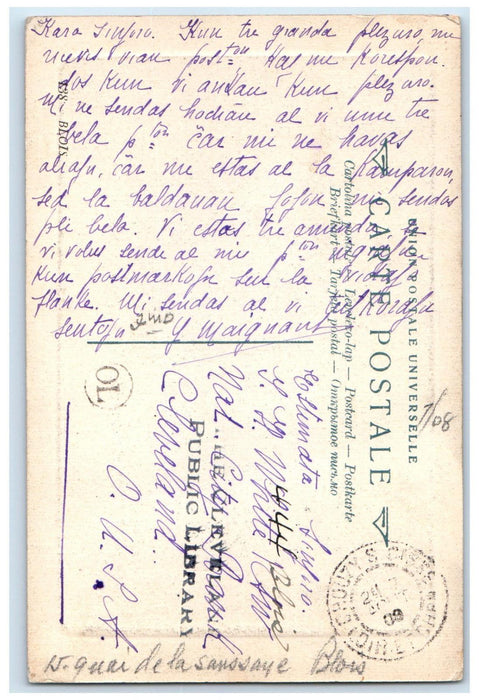 Kara Sinjoro. Kun tre granda plezuro, mi
ricevis vian post^on Kas me korespon
dos kun vi ankau kun plezuro.
Mi ne sendas hodiau al vi unu tre
bela p^ton car mi ne havas
aliajn, car me estas al la kamparon,
sed la baldauan fojon mi sendos
pli bela. Vi estas tre aminda, se
vi volus sende al mi p^ton
kun postmarkojn sur la vidaj
flanko. Mi sendas al vi korajn
sentojn Y Maignant
138 BLOIS
UNION POSTALE UNIVERSELLE
CARTE POSTALE
Cartolina postale — Levelezo-lap — Postcard — Postkarte
Briefkaart — Tarjeta postal — Открытое письмо
Estimata Sinjoro.
White
Nat. City Bank
Cleveland
O. U.S.A
BELLEVILLE
PUBLIC LIBRARY
OL
7/08
15 quai de la saussaye Blois